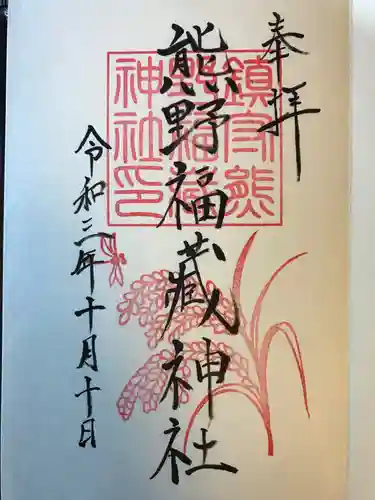 奉拝
鎮守熊
野福蔵
神社印
熊野福蔵神社
令和三年十月十日